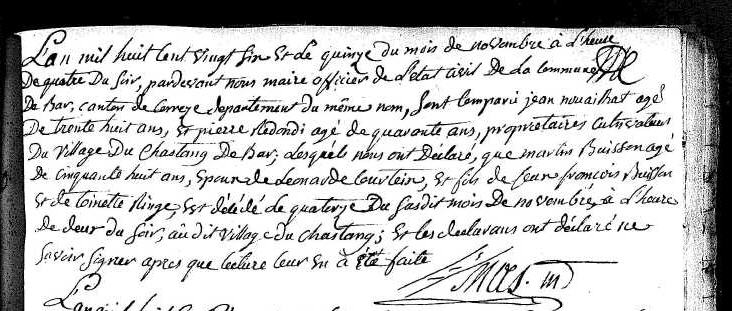 L'an mil huit Cent vingt Six Et Le quinze du mois de novembre à L'heure
De quatre Du Soir, pardevant nous maire officier de L'etat Civil De La Commune
De Bar, canton de Correze departement du même nom, Sont Comparu jean nouailhat agé
De trente huit ans, Et pierre Redondi agé de quarante ans, propriétaires Cultivateurs
Du Village Du Chastang De Bar; Lesquels nous ont Déclaré, que martin Buisson agé
De Cinquante huit ans, Epoux de Leonarde Courtein, Et fils de jean françois Buisson
Et de toinette Ringe, Est décédé Le quatorze Du Susdit mois De novembre, à L'heure
De deux du Soir, au dit Village du Chastang; Et les declarans ont déclaré ne
Savoir Signer apres que Lecture Leur En à été faite
L'an mil huit Cent